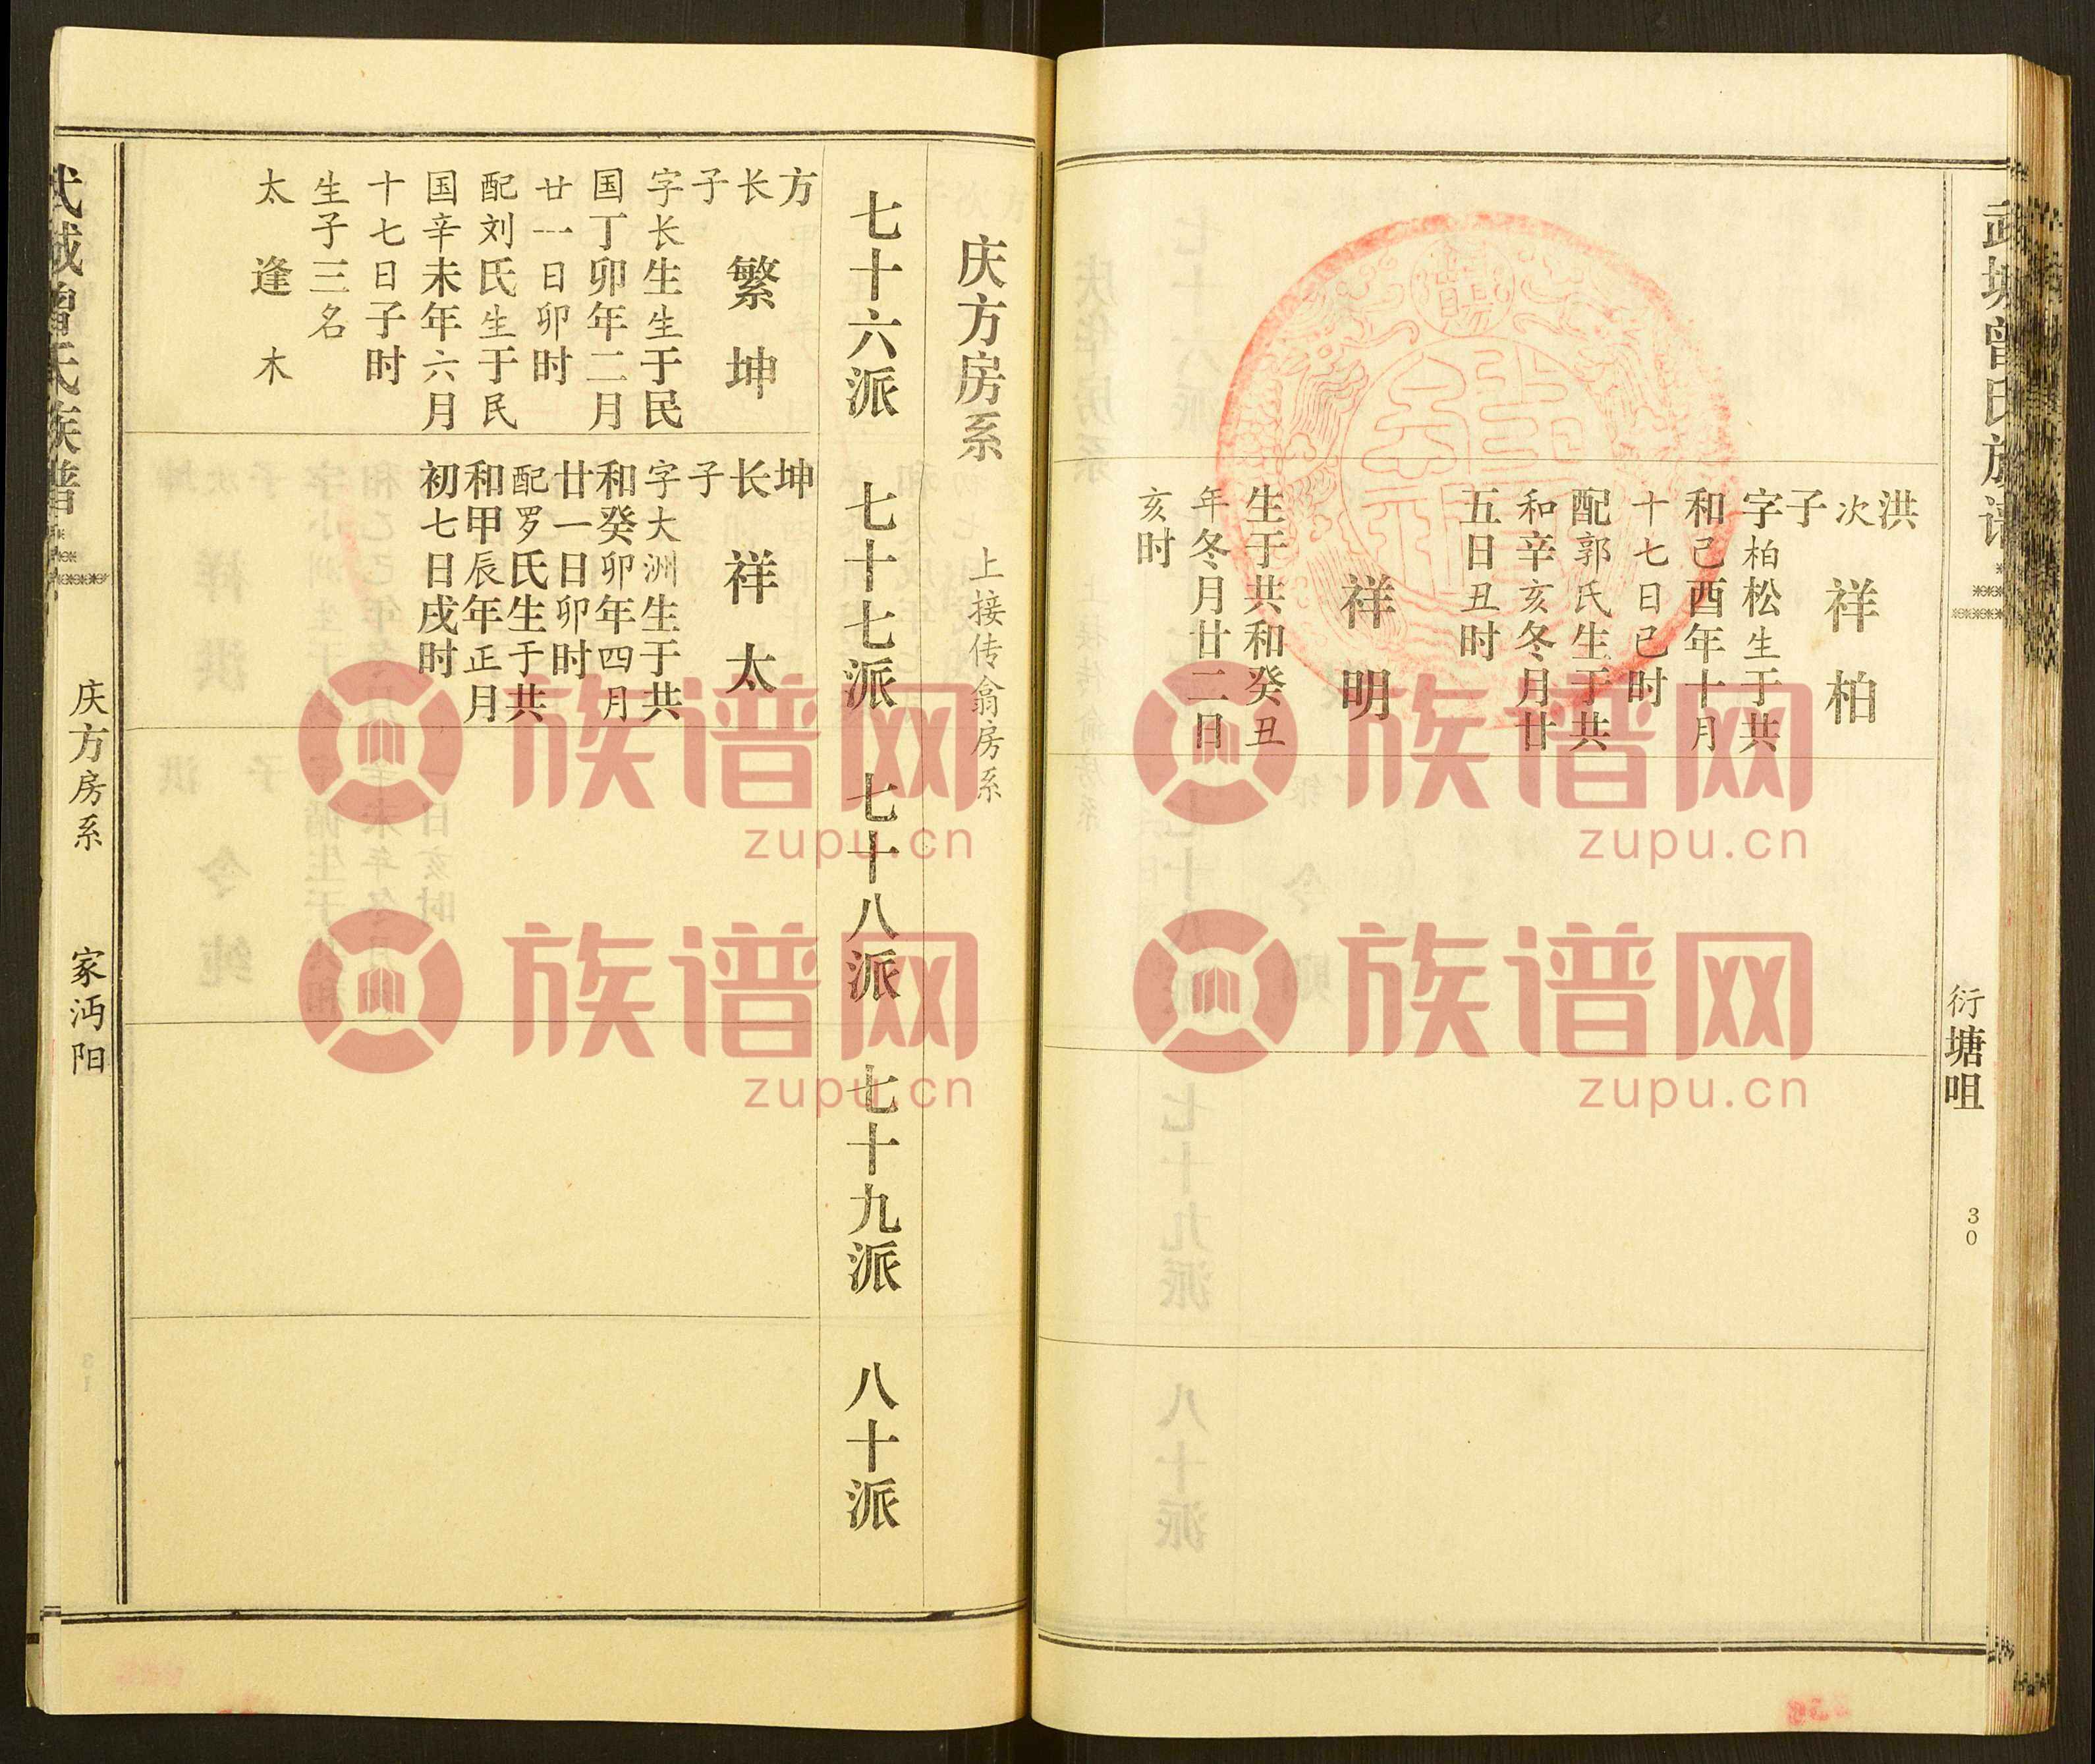 武城曾氏族谱
衍塘咀
30
洪
次
子
祥柏
字柏松生于共
和己酉年十月
十七日巳时
配郭氏生于共
和辛亥冬月廿
五日丑时
祥明
生于共和癸丑
年冬月廿二日
亥时
庆方房系
上接传翁房系
七十六派
七十七派
七十八派
七十九派
八十派
方
长
子
繁坤
字长生生于民
国丁卯年二月
廿一日卯时
配刘氏生于民
国辛未年六月
十七日子时
生子三名
太逢木
坤
长
子
祥太
字大洲生于共
和癸卯年四月
廿一日卯时
配罗氏生于共
和甲辰年正月
初七日戌时
武城曾氏族谱
庆方房系
家沔阳
族谱网
zupu.cn
族谱网
zupu.cn
族谱网
zupu.cn
族谱网
zupu.cn